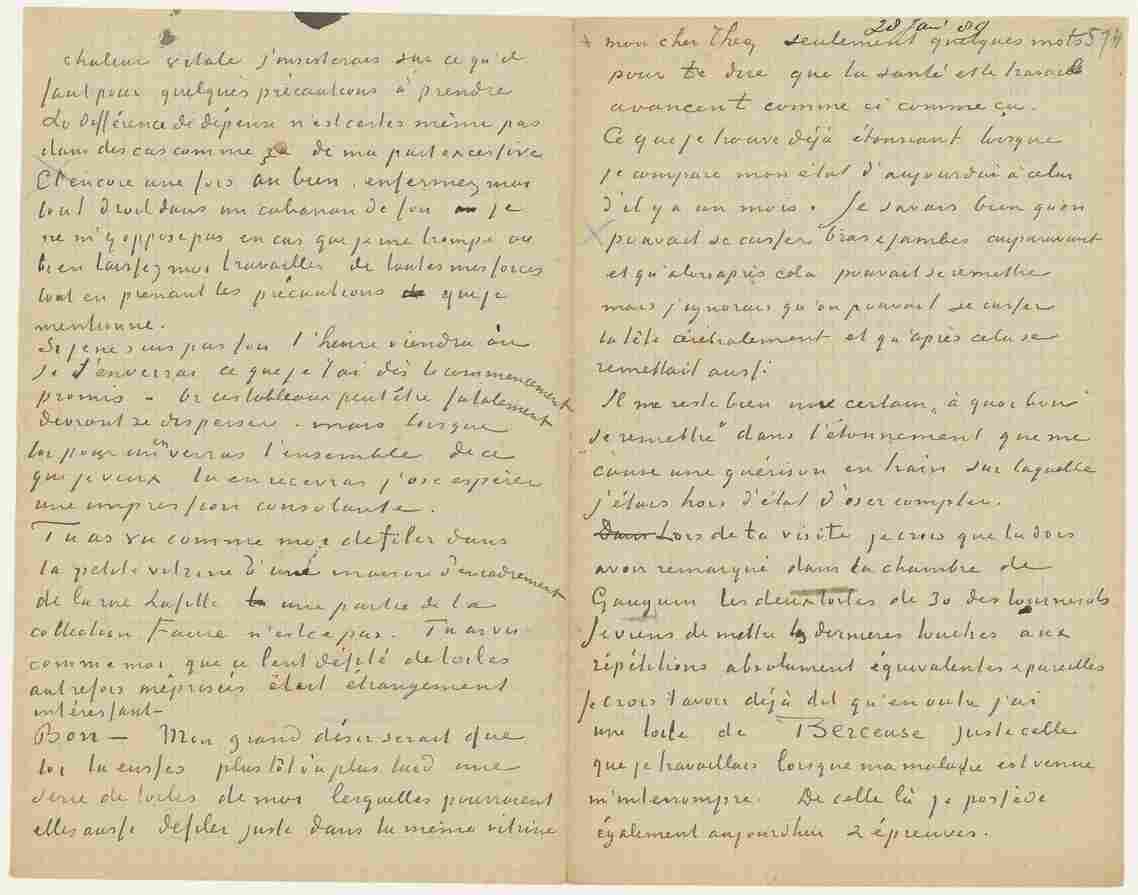 chaleur vitale j'insisterais sur ce qu'il
faut pour quelques précautions à prendre
La différence de dépense n'est certes même pas
dans des cas comme ça de ma part excessive
Et encore une fois ou bien enfermez moi
tout droit dans un cabanon de fou je
ne m'y oppose pas en cas que je me trompe ou
bien laissez moi travailler de toutes mes forces
tout en prenant les précautions que je
mentionne.
Si je ne suis pas fou l'heure viendra où
je t'enverrai ce que je t'ai dès le commencement
promis – Or ces tableaux peut être fatalement
devront se disperser. mais lorsque
toi pour un en verras l'ensemble de ce
que je veux tu en recevras j'ose espérer
une impression consolante.
Tu as vu comme moi defiler dans
la petite vitrine d'une maison d'encadrement
de la rue Lafitte une partie de la
collection Faure n'est ce pas. Tu as vu
comme moi que ce lent défilé de toiles
autrefois méprisées était étrangement
intéressant –
Bon – Mon grand désir serait que
toi tu eusses plus tôt ou plus tard une
série de toiles de moi lesquelles pourraient
elles aussi défiler juste dans la même vitrine
28 Jan 89
574
mon cher Theo, seulement quelques mots
pour te dire que la santé et le travail
avancent comme ci comme ça.
Ce que je trouve déjà étonnant lorsque
je compare mon état d'aujourd'ui à celui
d'il y a un mois. Je savais bien qu'on
pouvait se casser bras & jambes auparavant
et qu'alors après cela pouvait se remettre
mais j'ignorais qu'on pouvait se casser
la tête cérébralement et qu'après cela se
remettait aussi.
Il me reste bien un certain „à quoi bon
se remettre” dans l'étonnement que me
cause une guérison en train sur laquelle
j'étais hors d'état d'oser compter.
Dans Lors de ta visite je crois que tu dois
avoir remarqué dans la chambre de
Gauguin les deux toiles de 30 des tournesols
Je viens de mettre les dernieres touches aux
répétitions absolument équivalentes & pareilles
Je crois t'avoir déjà dit qu'en outre j'ai
une toile de Berceuse juste celle
que je travaillais lorsque ma maladie est venue
m'interrompre. De celle là je possède
également aujourdhui 2 épreuves.